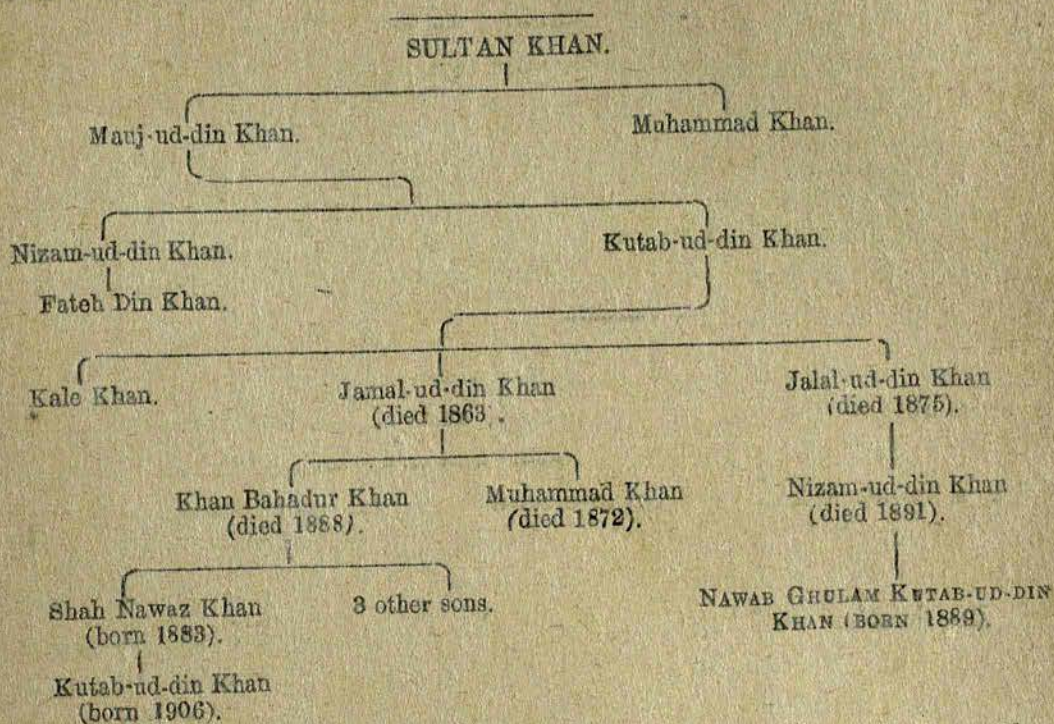 SULTAN KHAN.
Mauj-ud-din Khan.
Muhammad Khan.
Nizam-ud-din Khan.
Kutab-ud-din Khan.
Fateh Din Khan.
Kale Khan.
Jamal-ud-din Khan
(died 1863).
Jalal-ud-din Khan
(died 1875).
Khan Bahadur Khan
(died 1888).
Muhammad Khan
(died 1872).
Nizam-ud-din Khan
(died 1891).
Shah Nawaz Khan
(born 1883).
3 other sons.
NAWAB GHULAM KUTAB-UD-DIN
KHAN (BORN 1889).
Kutab-ud-din Khan
(born 1906).